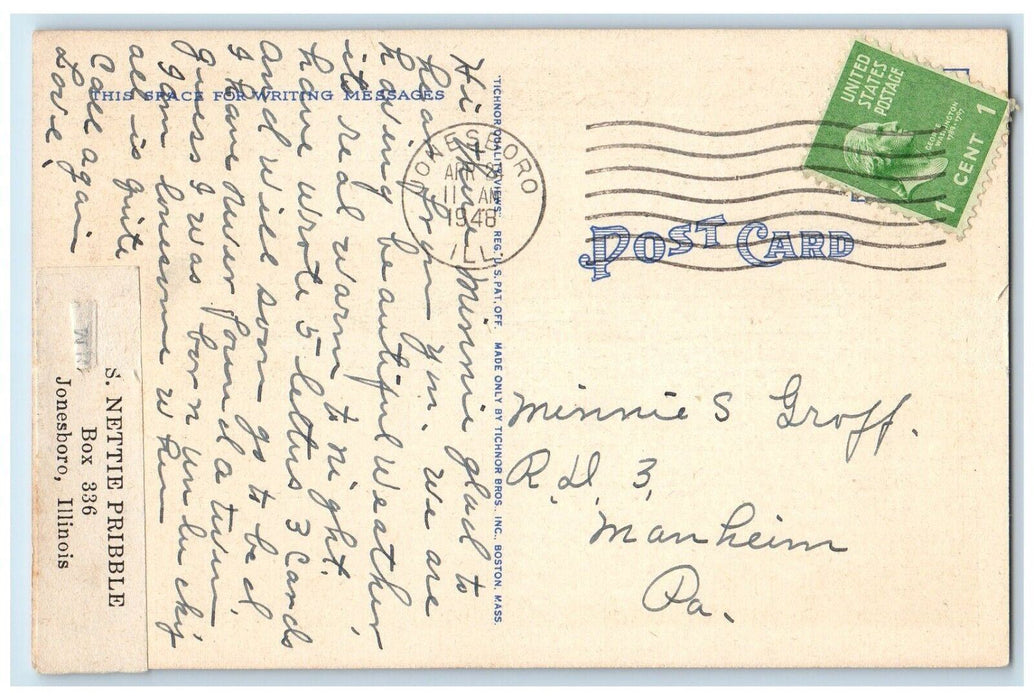 THIS SPACE FOR WRITING MESSAGES
Hi Minnie glad to
hear from you. we are
having beautiful weather,
its real warm to night.
have wrote 5 letters 3 Cards
and will soon go to bed,
I have never found a twin
guess I was born unlucky
I am lonesome when
all is quite
Call again
Love,
S. NETTIE PRIBBLE
Box 336
Jonesboro, Illinois
"TICHNOR QUALITY VIEWS," REG. U. S. PAT. OFF. MADE ONLY BY TICHNOR BROS., INC., BOSTON, MASS.
JONESBORO
APR
11 AM
1948
ILL.
UNITED
STATES
POSTAGE
GEORGE
WASHINGTON
1 CENT 1
POST CARD
Minnie S Groff.
R.D. 3,
Manheim
Pa.